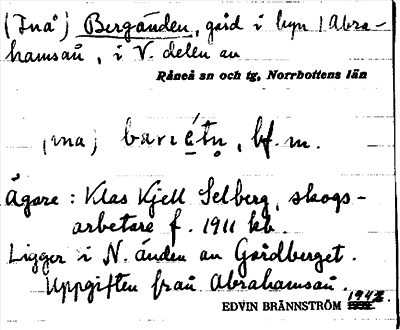 (Inå) Bergänden, gård i byn (Abra-
hamsån, i V. delen av
Råneå sn och tg, Norrbottens län
bf. m.
Ägare: Klas Kjell Selberg, skogs-
arbetare f. 1911 kb.
Ligger i N. änden av Gårdberget.
Uppgiften från Abrahamsån.
EDVIN BRÄNNSTRÖM 1942.